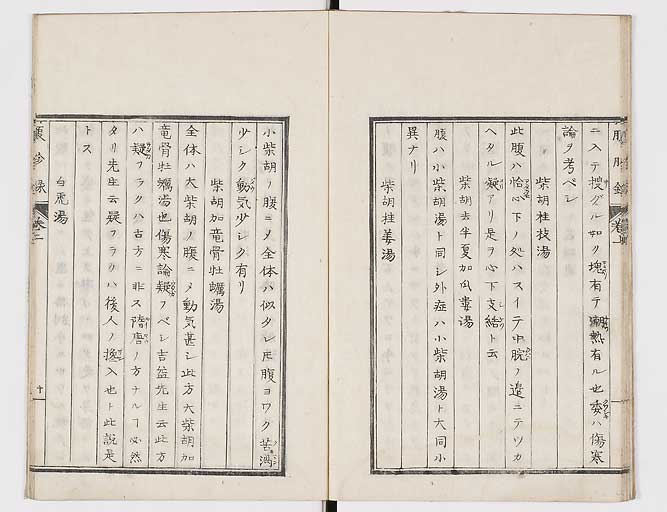 ニ入テ捜グル如ク塊有テ煩熱有ル也委ハ傷寒
論ヲ考ベシ
柴胡桂枝湯
此腹ハ恰心下ノ処ハスイテ中脘ノ邉ニテツカ
ヘタル疑アリ是ヲ心下支結ト云
柴胡去半夏加瓜蔞湯
腹ハ小柴胡湯ト同シ外症ハ小柴胡湯ト大同小
異ナリ
柴胡桂姜湯
小柴胡ノ腹ニメ全体ハ似タレ𪜈腹ヨワク苦満
少シク動気少シク有リ
柴胡加竜骨牡蠣湯
全体ハ大柴胡ノ腹ニメ動気甚シ此方大柴胡加
竜骨牡蠣湯也傷寒論疑フベシ吉益先生云此方
ハ疑フラクハ古方ニ非ス隋唐ノ方ナルヿ必然
タリ先生云疑フラクハ後人ノ攙入也ト此説是
トス
白虎湯
腹診録
巻二
十